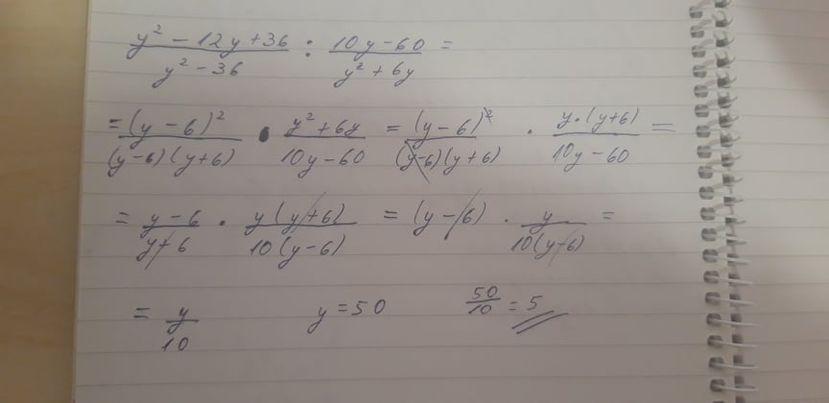 (y² - 12y + 36)/(y² - 36) : (10y - 60)/(y² + 6y) =
= (y - 6)²/((y - 6)(y + 6)) • (y² + 6y)/(10y - 60) = (y - 6)²/((y - 6)(y + 6)) · (y · (y + 6))/(10y - 60) =
= (y - 6)/(y + 6) · (y(y + 6))/(10(y - 6)) = (y - 6) · y/(10(y - 6)) =
= y/10 y = 50 50/10 = 5